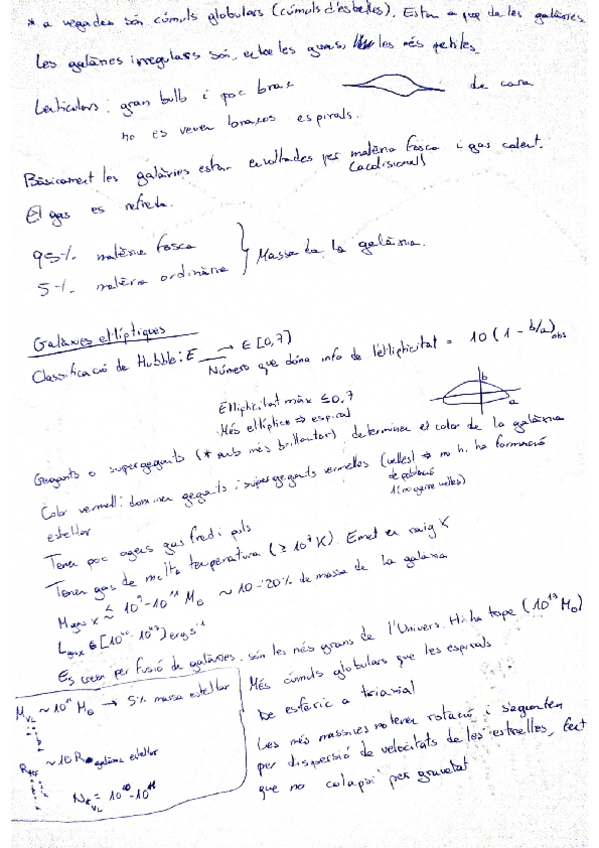 * a vegades són cúmuls globulars (cúmuls d'estrelles). Estan a prop de les galàxies
Les galàxies irregulars són, entre les grans, les més petites.
Lenticulars: gran bulb i poc braç
de cara
no es veuen braços espirals.
Bàsicament les galàxies estan envoltades per matèria fosca i gas calent.
(acolisional)
El gas es refreda.
95% matèria fosca
5% matèria ordinària
Massa de la galàxia.
Galàxies el·líptiques
Classificació de Hubble: E → ∈ [0,7]
Número que dóna info de l'el·lipticitat = 10 (1 - b/a)obs
El·lipticitat màx ≤ 0,7
Més el·líptica ⇒ espiral
b
a
Gegants o supergegants (* amb més brillantor) determinen el color de la galàxia
Color vermell: dominen gegants i supergegants vermelles (velles) ⇒ no hi ha formació
de població
estel·lar
Tenen poc gas fred i pols
Tenen gas de molta temperatura (≥ 10⁷ K). Emet en raig X
M gas X ≲ 10⁹-10¹¹ M⊙ ~ 10-20% de massa de la galàxia
∈ [10⁴⁰ - 10⁴³] erg s⁻¹
Es creen per fusió de galàxies, són les més grans de l'Univers. Hi ha tope (10¹³ M⊙)
~ 10¹¹ M⊙ → 5% massa estel·lar
~ 10 R galàxia estel·lar
Més cúmuls globulars que les espirals
De esfèric a triaxial
Les més massives no tenen rotació i s'aguanten
per dispersió de velocitats de les estrelles, fent
que no colapsi per gravetat